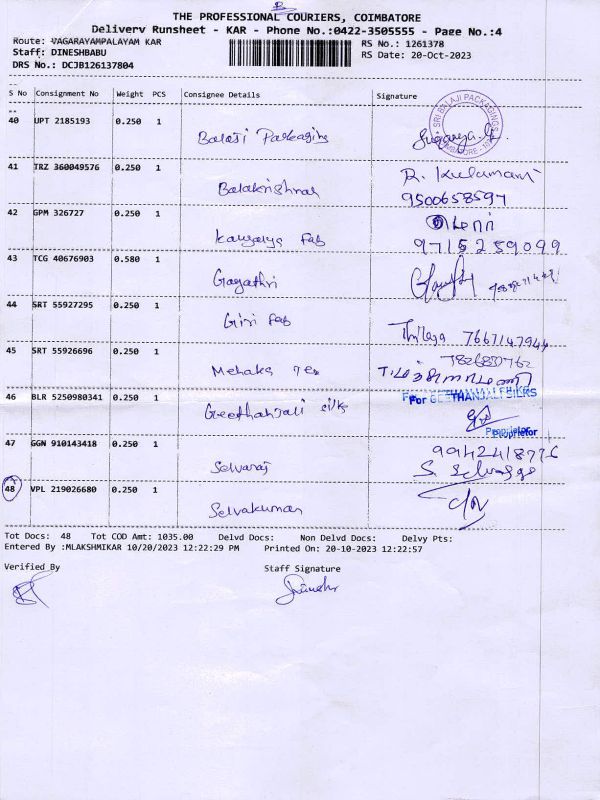 B
THE PROFESSIONAL COURIERS, COIMBATORE
Delivery Runsheet - KAR - Phone No.:0422-3505555 - Page No.:4
Route: VAGARAYAMPALAYAM KAR
RS No.: 1261378
Staff: DINESHBABU
RS Date: 20-Oct-2023
DRS No.: DCJB126137804
S No Consignment No Weight PCS Consignee Details Signature
40 UPT 2185193 0.250 1
Balaji Packaging
SRI BALAJI PACKAGINGS
41 TRZ 360049576 0.250 1 R. Kulamani
Balakrishnan 9500658597
42 GPM 326727 0.250 1
Kangaiya Fab 9715259099
43 TCG 40676903 0.580 1
Gayathri
44 SRT 55927295 0.250 1
Giri Fab Thilaga 7667147944
45 SRT 55926696 0.250 1 7826830762
Mehaka Tex
46 BLR 5250980341 0.250 1 For GEETHANJALI SILKS
Geethanjali silks
Proprietor
47 GGN 910143418 0.250 1 9942418776
Selvaraj
48 VPL 219026680 0.250 1
Selvakumar
Tot Docs: 48 Tot COD Amt: 1035.00 Delvd Docs: Non Delvd Docs: Delvy Pts:
Entered By :MLAKSHMIKAR 10/20/2023 12:22:29 PM Printed On: 20-10-2023 12:22:57
Verified By Staff Signature